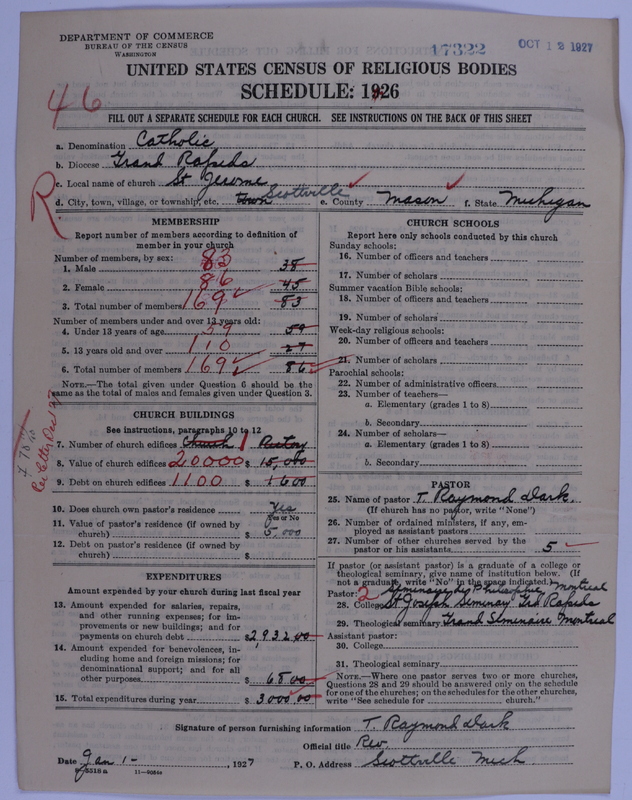 DEPARTMENT OF COMMERCE
BUREAU OF THE CENSUS
WASHINGTON
17322
OCT 12 1927
UNITED STATES CENSUS OF RELIGIOUS BODIES
SCHEDULE: 1926
46
FILL OUT A SEPARATE SCHEDULE FOR EACH CHURCH. SEE INSTRUCTIONS ON THE BACK OF THIS SHEET
a. Denomination Catholic
b. Diocese Grand Rapids
c. Local name of church St Jerome
R
d. City, town, village, or township, etc. Town Scottville e. County Mason f. State Michigan
MEMBERSHIP
Report number of members according to definition of member in your church
Number of members, by sex:
1. Male 83 38
2. Female 86 45
3. Total number of members 169 83
Number of members under and over 13 years old:
4. Under 13 years of age 59 59
5. 13 years old and over 110 27
6. Total number of members 169 86
NOTE.—The total given under Question 6 should be the same as the total of males and females given under Question 3.
CHURCH BUILDINGS
See instructions, paragraphs 10 to 12
7. Number of church edifices Church 1 Rectory
8. Value of church edifices 20000 $ 15,000
9. Debt on church edifices 1100 $ 1600
10. Does church own pastor's residence Yes
Yes or No
11. Value of pastor's residence (if owned by church) $ 5,000
12. Debt on pastor's residence (if owned by church) $
EXPENDITURES
Amount expended by your church during last fiscal year
13. Amount expended for salaries, repairs, and other running expenses; for improvements or new buildings; and for payments on church debt $ 2,932.00
14. Amount expended for benevolences, including home and foreign missions; for denominational support; and for all other purposes $ 68.00
15. Total expenditures during year $ 3000.00
CHURCH SCHOOLS
Report here only schools conducted by this church
Sunday schools:
16. Number of officers and teachers
17. Number of scholars
Summer vacation Bible schools:
18. Number of officers and teachers
19. Number of scholars
Week-day religious schools:
20. Number of officers and teachers
21. Number of scholars
Parochial schools:
22. Number of administrative officers
23. Number of teachers—
a. Elementary (grades 1 to 8)
b. Secondary
24. Number of scholars—
a. Elementary (grades 1 to 8)
b. Secondary
PASTOR
25. Name of pastor T. Raymond Dark
(If church has no pastor, write "None")
26. Number of ordained ministers, if any, employed as assistant pastors
27. Number of other churches served by the pastor or his assistants 5
If pastor (or assistant pastor) is a graduate of a college or theological seminary, give name of institution below. (If not a graduate, write "No" in the space indicated)
Pastor: 2 Seminaire de Philosophie Montreal
28. College St Joseph Seminary Grd Rapids
29. Theological seminary Grand Seminaire Montreal
Assistant pastor:
30. College
31. Theological seminary
NOTE.—Where one pastor serves two or more churches, Questions 28 and 29 should be answered only on the schedule for one of the churches; on the schedules for the other churches, write "See schedule for church."
Signature of person furnishing information T. Raymond Dark
Official title Rev.
Date Jan 1- , 1927 P. O. Address Scottville Mich